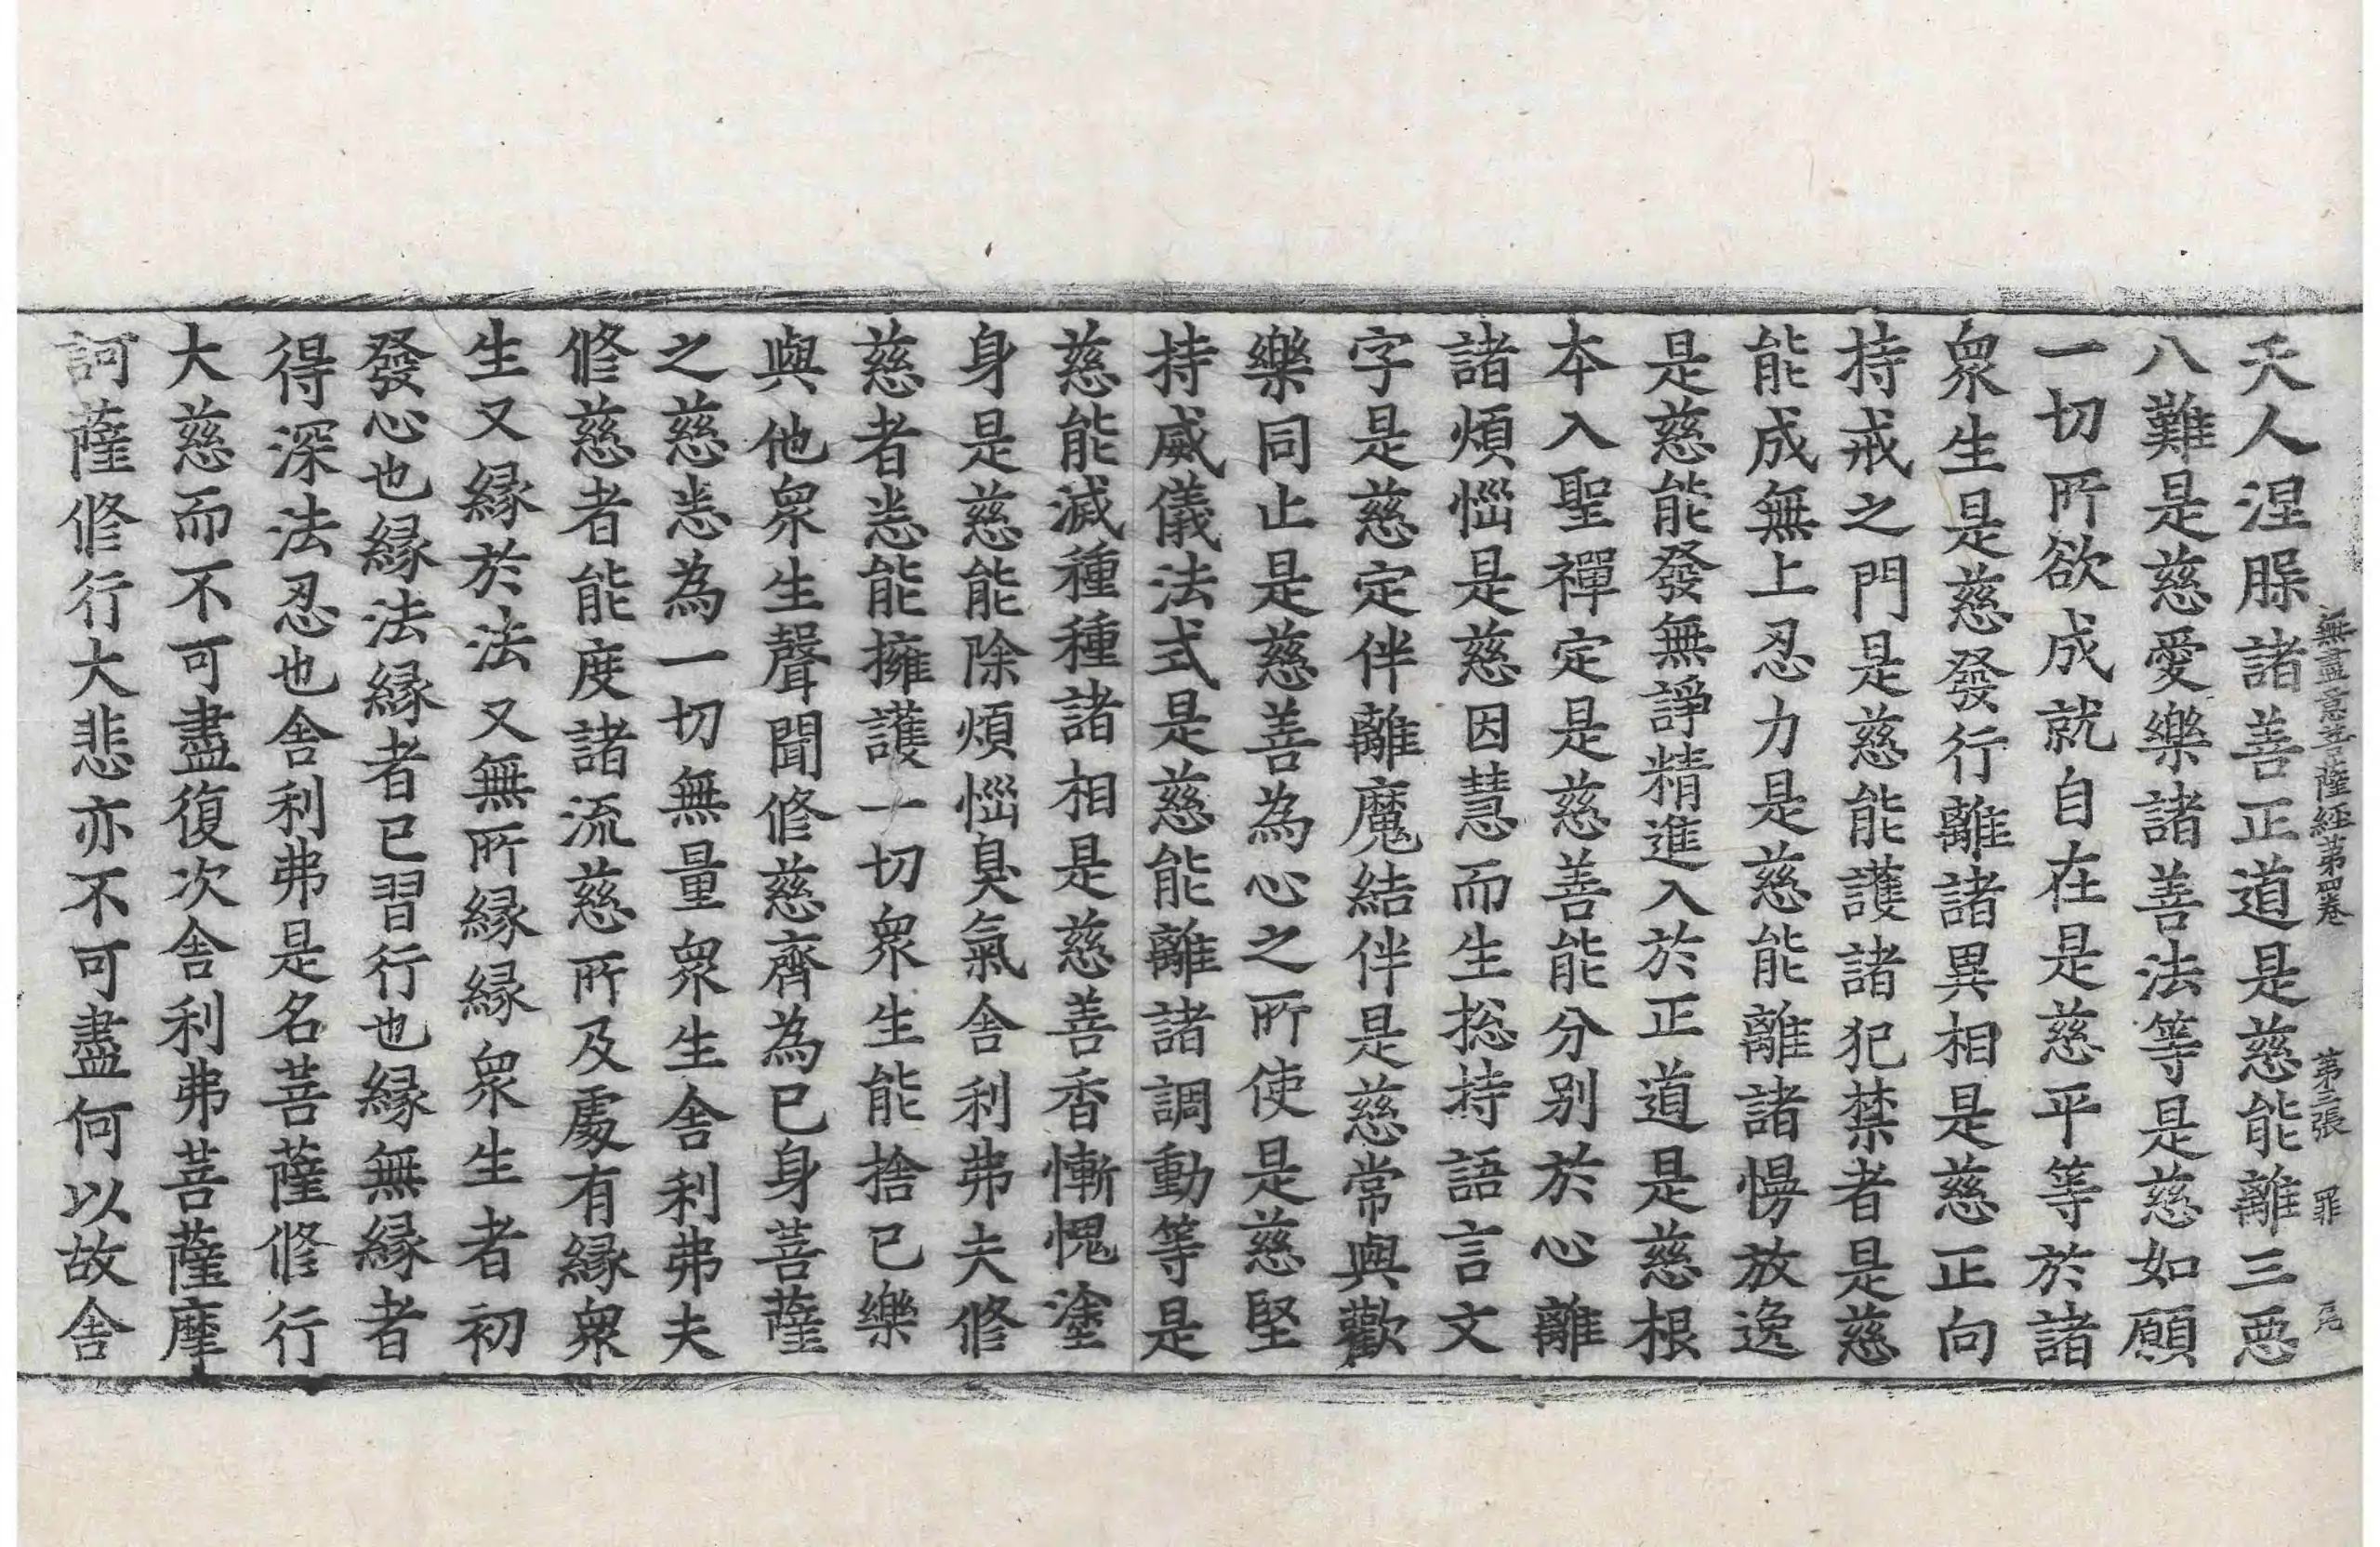 無盡意菩薩經第四卷　第三張　罪　尾
天人涅槃諸善正道是慈能離三惡
八難是慈愛樂諸善法等是慈如願
一切所欲成就自在是慈平等於諸
衆生是慈發行離諸異相是慈正向
持戒之門是慈能護諸犯禁者是慈
能成無上忍力是慈能離諸慢放逸
是慈能發無諍精進入於正道是慈根
本入聖禪定是慈善能分別於心離
諸煩惱是慈因慧而生捴持語言文
字是慈定伴離魔結伴是慈常與歡
樂同止是慈善為心之所使是慈堅
持威儀法式是慈能離諸調動等是
慈能滅種種諸相是慈善香慚愧塗
身是慈能除煩惱臭氣舍利弗夫修
慈者悉能擁護一切衆生能捨已樂
與他衆生聲聞修慈齊為已身菩薩
之慈悉為一切無量衆生舍利弗夫
修慈者能度諸流慈所及處有縁衆
生又縁於法又無所縁縁衆生者初
發心也縁法縁者已習行也縁無縁者
得深法忍也舍利弗是名菩薩修行
大慈而不可盡復次舍利弗菩薩摩
訶薩修行大悲亦不可盡何以故舍